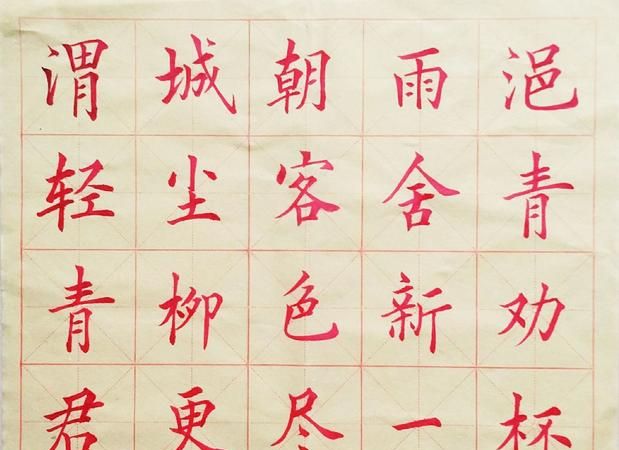 渭城朝雨浥
轻尘客舍青
青柳色新劝
君更尽一杯